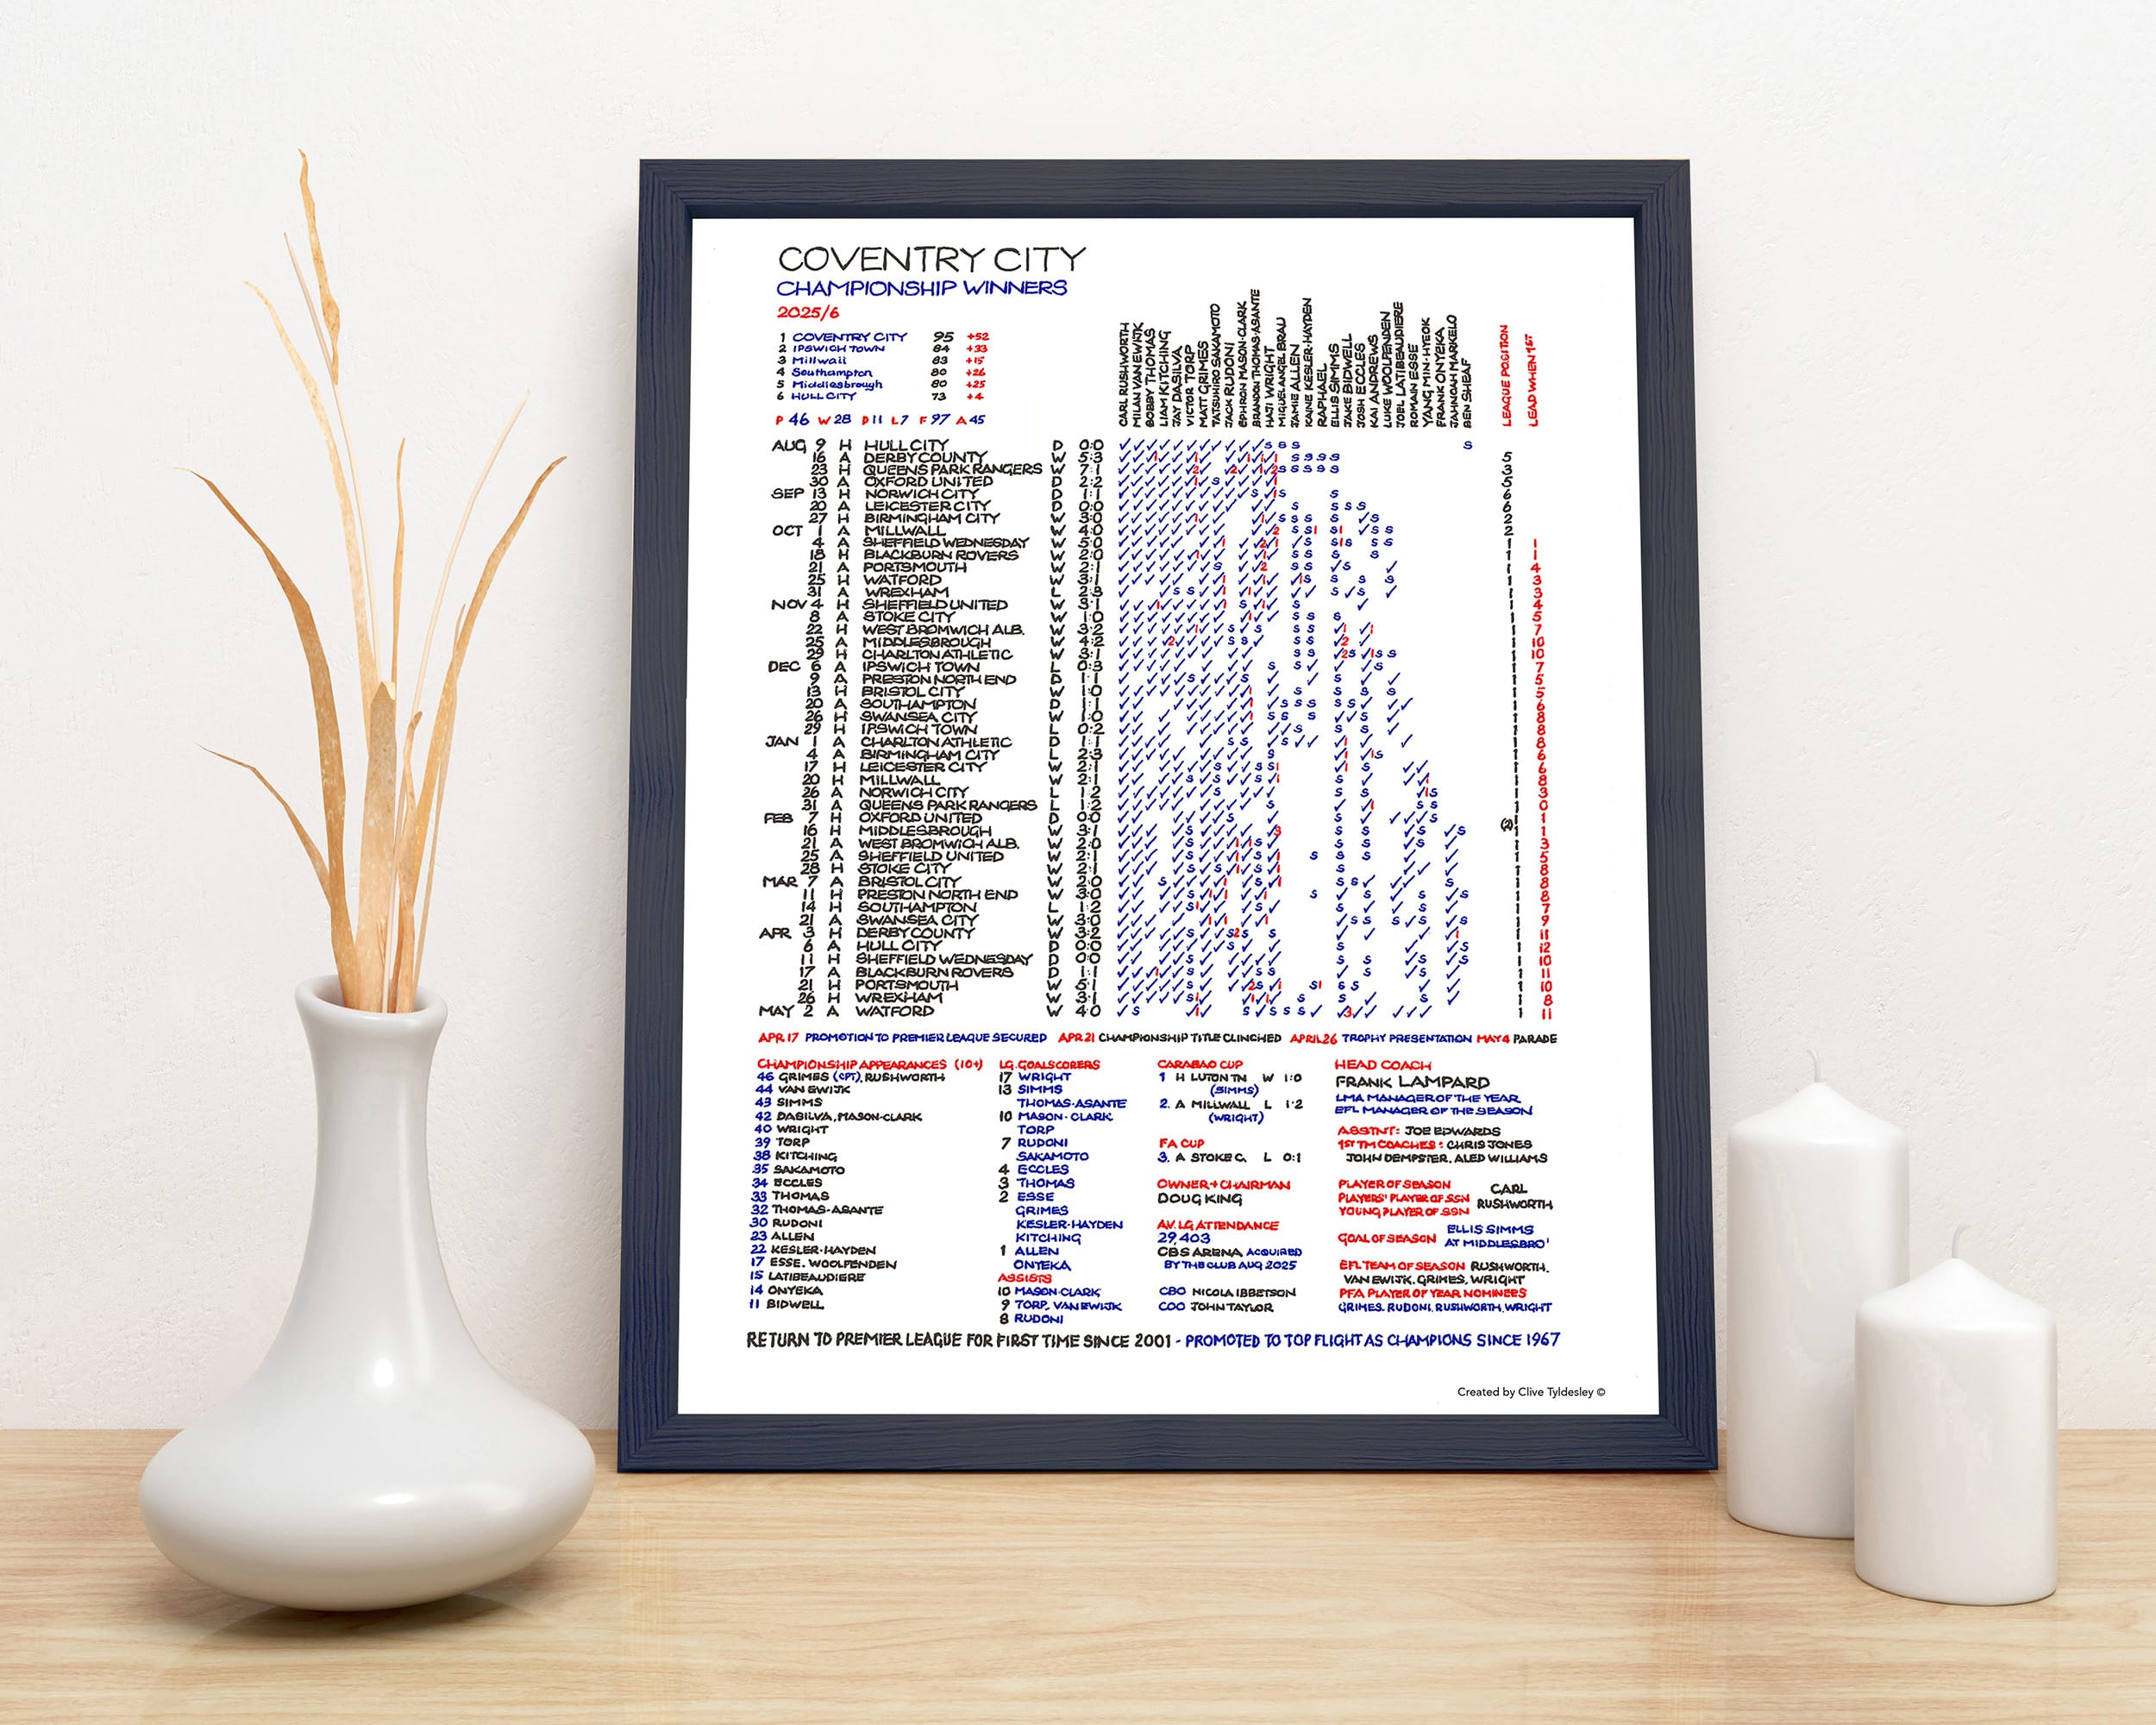 COVENTRY CITY
CHAMPIONSHIP WINNERS
2025/6
1 COVENTRY CITY 95 +52
2 IPSWICH TOWN 84 +33
3 Millwall 83 +15
4 Southampton 80 +26
5 Middlesbrough 80 +25
6 HULL CITY 73 +4
P 46 W 28 D 11 L 7 F 97 A 45
CARL RUSHWORTH
MILAN VAN EWIJK
BOBBY THOMAS
LIAM KITCHING
JAY DASILVA
VICTOR TORP
MATT GRIMES
TATSUHIRO SAKAMOTO
JACK RUDONI
EPHRON MASON-CLARK
BRANDON THOMAS-ASANTE
HAJI WRIGHT
MIGUEL ANGEL BRAU
JAMIE ALLEN
KAINE KESLER-HAYDEN
RAPHAEL
ELLIS SIMMS
JAKE BIDWELL
JOSH ECCLES
KAI ANDREWS
LUKE WOOLFENDEN
JOEL LATIBEAUDIERE
ROMAIN ESSE
YANG MIN-HYEOK
FRANK ONYEKA
JAHNOAH MARKELO
BEN SHEAF
LEAGUE POSITION
LEAD WHEN 1ST
AUG 9 H HULL CITY D 0:0
16 A DERBY COUNTY W 5:3 5
23 H QUEENS PARK RANGERS W 7:1 3
30 A OXFORD UNITED D 2:2 5
SEP 13 H NORWICH CITY D 1:1 6
20 A LEICESTER CITY D 0:0 6
27 H BIRMINGHAM CITY W 3:0 2
OCT 1 A MILLWALL W 4:0 2
4 A SHEFFIELD WEDNESDAY W 5:0 1 1
18 H BLACKBURN ROVERS W 2:0 1 1
21 A PORTSMOUTH W 2:1 1 4
25 H WATFORD W 3:1 1 3
31 A WREXHAM L 2:3 1 3
NOV 4 H SHEFFIELD UNITED W 3:1 1 4
8 A STOKE CITY W 1:0 1 5
22 H WEST BROMWICH ALB. W 3:2 1 7
25 A MIDDLESBROUGH W 4:2 1 10
29 H CHARLTON ATHLETIC W 3:1 1 10
DEC 6 A IPSWICH TOWN L 0:3 1 7
9 A PRESTON NORTH END D 1:1 1 5
13 H BRISTOL CITY W 1:0 1 5
20 A SOUTHAMPTON D 1:1 1 6
26 H SWANSEA CITY W 1:0 1 8
29 H IPSWICH TOWN L 0:2 1 8
JAN 1 A CHARLTON ATHLETIC D 1:1 1 8
4 A BIRMINGHAM CITY L 2:3 1 6
17 H LEICESTER CITY W 2:1 1 6
20 H MILLWALL W 2:1 1 8
26 A NORWICH CITY L 1:2 1 3
31 A QUEENS PARK RANGERS L 1:2 1 0
FEB 7 H OXFORD UNITED D 0:0 1 1
16 H MIDDLESBROUGH W 3:1 (2) 1 1
21 A WEST BROMWICH ALB. W 2:0 1 3
25 A SHEFFIELD UNITED W 2:1 1 5
28 H STOKE CITY W 2:1 1 8
MAR 7 A BRISTOL CITY W 2:0 1 8
11 H PRESTON NORTH END W 3:0 1 8
14 H SOUTHAMPTON L 1:2 1 7
21 A SWANSEA CITY W 3:0 1 9
APR 3 H DERBY COUNTY W 3:2 1 11
6 A HULL CITY D 0:0 1 12
11 H SHEFFIELD WEDNESDAY D 0:0 1 10
17 A BLACKBURN ROVERS D 1:1 1 11
21 H PORTSMOUTH W 5:1 1 10
26 H WREXHAM W 3:1 1 8
MAY 2 A WATFORD W 4:0 1 11
APR 17 PROMOTION TO PREMIER LEAGUE SECURED APR 21 CHAMPIONSHIP TITLE CLINCHED APRIL 26 TROPHY PRESENTATION MAY 4 PARADE
CHAMPIONSHIP APPEARANCES (10+)
46 GRIMES (CPT), RUSHWORTH
44 VAN EWIJK
43 SIMMS
42 DASILVA, MASON-CLARK
40 WRIGHT
39 TORP
38 KITCHING
35 SAKAMOTO
34 ECCLES
33 THOMAS
32 THOMAS-ASANTE
30 RUDONI
23 ALLEN
22 KESLER-HAYDEN
17 ESSE, WOOLFENDEN
15 LATIBEAUDIERE
14 ONYEKA
11 BIDWELL
LG. GOALSCORERS
17 WRIGHT
13 SIMMS
THOMAS-ASANTE
10 MASON-CLARK
TORP
7 RUDONI
SAKAMOTO
4 ECCLES
3 THOMAS
2 ESSE
GRIMES
KESLER-HAYDEN
KITCHING
1 ALLEN
ONYEKA
ASSISTS
10 MASON-CLARK
9 TORP, VAN EWIJK
8 RUDONI
CARABAO CUP
1 H LUTON TN W 1:0
(SIMMS)
2. A MILLWALL L 1:2
(WRIGHT)
FA CUP
3. A STOKE C. L 0:1
OWNER + CHAIRMAN
DOUG KING
AV. LG ATTENDANCE
29,403
CBS ARENA ACQUIRED
BY THE CLUB AUG 2025
CBO NICOLA IBBETSON
COO JOHN TAYLOR
HEAD COACH
FRANK LAMPARD
LMA MANAGER OF THE YEAR
EFL MANAGER OF THE SEASON
ASSTNT: JOE EDWARDS
1ST TM COACHES: CHRIS JONES
JOHN DEMPSTER, ALED WILLIAMS
PLAYER OF SEASON
PLAYERS' PLAYER OF SSN
YOUNG PLAYER OF SSN
CARL
RUSHWORTH
GOAL OF SEASON ELLIS SIMMS
AT MIDDLESBRO'
EFL TEAM OF SEASON RUSHWORTH,
VAN EWIJK, GRIMES, WRIGHT
PFA PLAYER OF YEAR NOMINEES
GRIMES, RUDONI, RUSHWORTH, WRIGHT
RETURN TO PREMIER LEAGUE FOR FIRST TIME SINCE 2001 - PROMOTED TO TOP FLIGHT AS CHAMPIONS SINCE 1967
Created by Clive Tyldesley ©